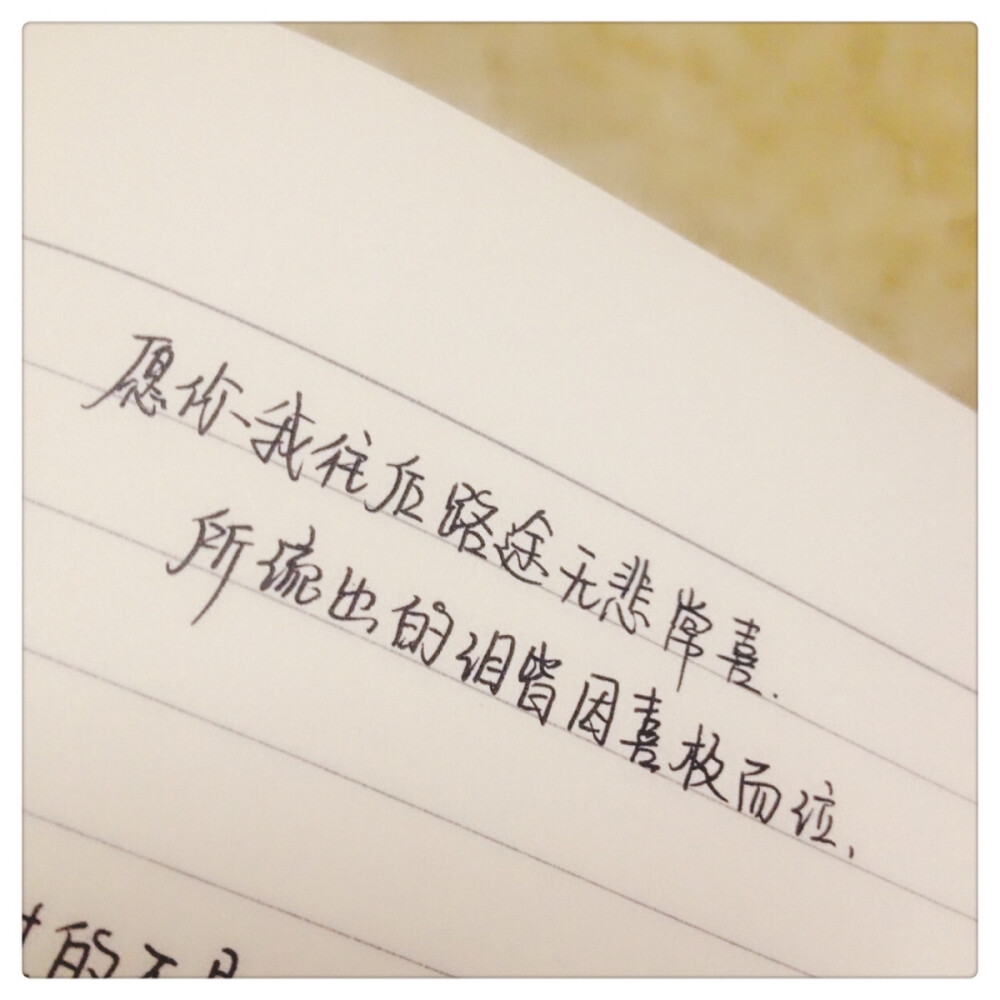 愿你我往后路途无悲常喜.
所流出的泪皆因喜极而泣.
的不是